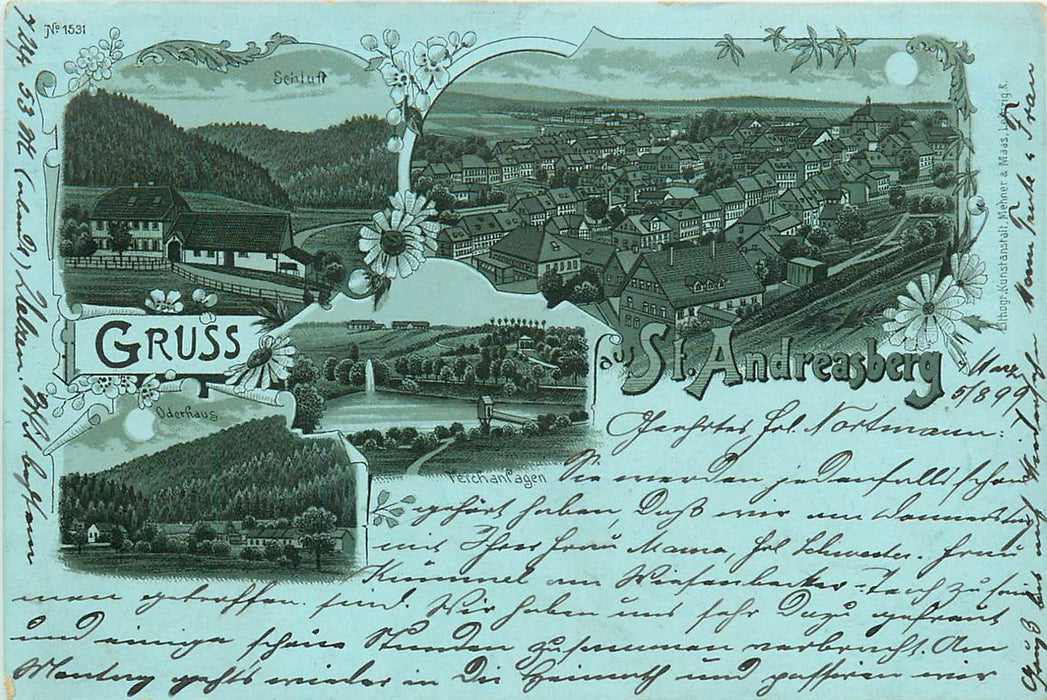 No 1531
Schluft
GRUSS
aus St. Andreasberg
Oderhaus.
Teichanlagen
Lithogr. Kunstanstalt, Mehner & Maas, Leipzig.R.
Harz
5/8 99
Geehrtes Frl. Nortmann:
Sie werden jedenfalls schon
gehört haben, daß wir am Donnerstag
mit Ihrer Frau Mama, Frl. Schwester. Frau
Kümmel am Wiesenbecker-Teich zusam
men getroffen sind. Wir haben uns sehr dazu gefreut
und einige schöne Stunden zusammen verbracht. Am
Montag geht's wieder in die Heimath und passieren wir
7 Uhr 53 M
Gruß bis auf
Frau